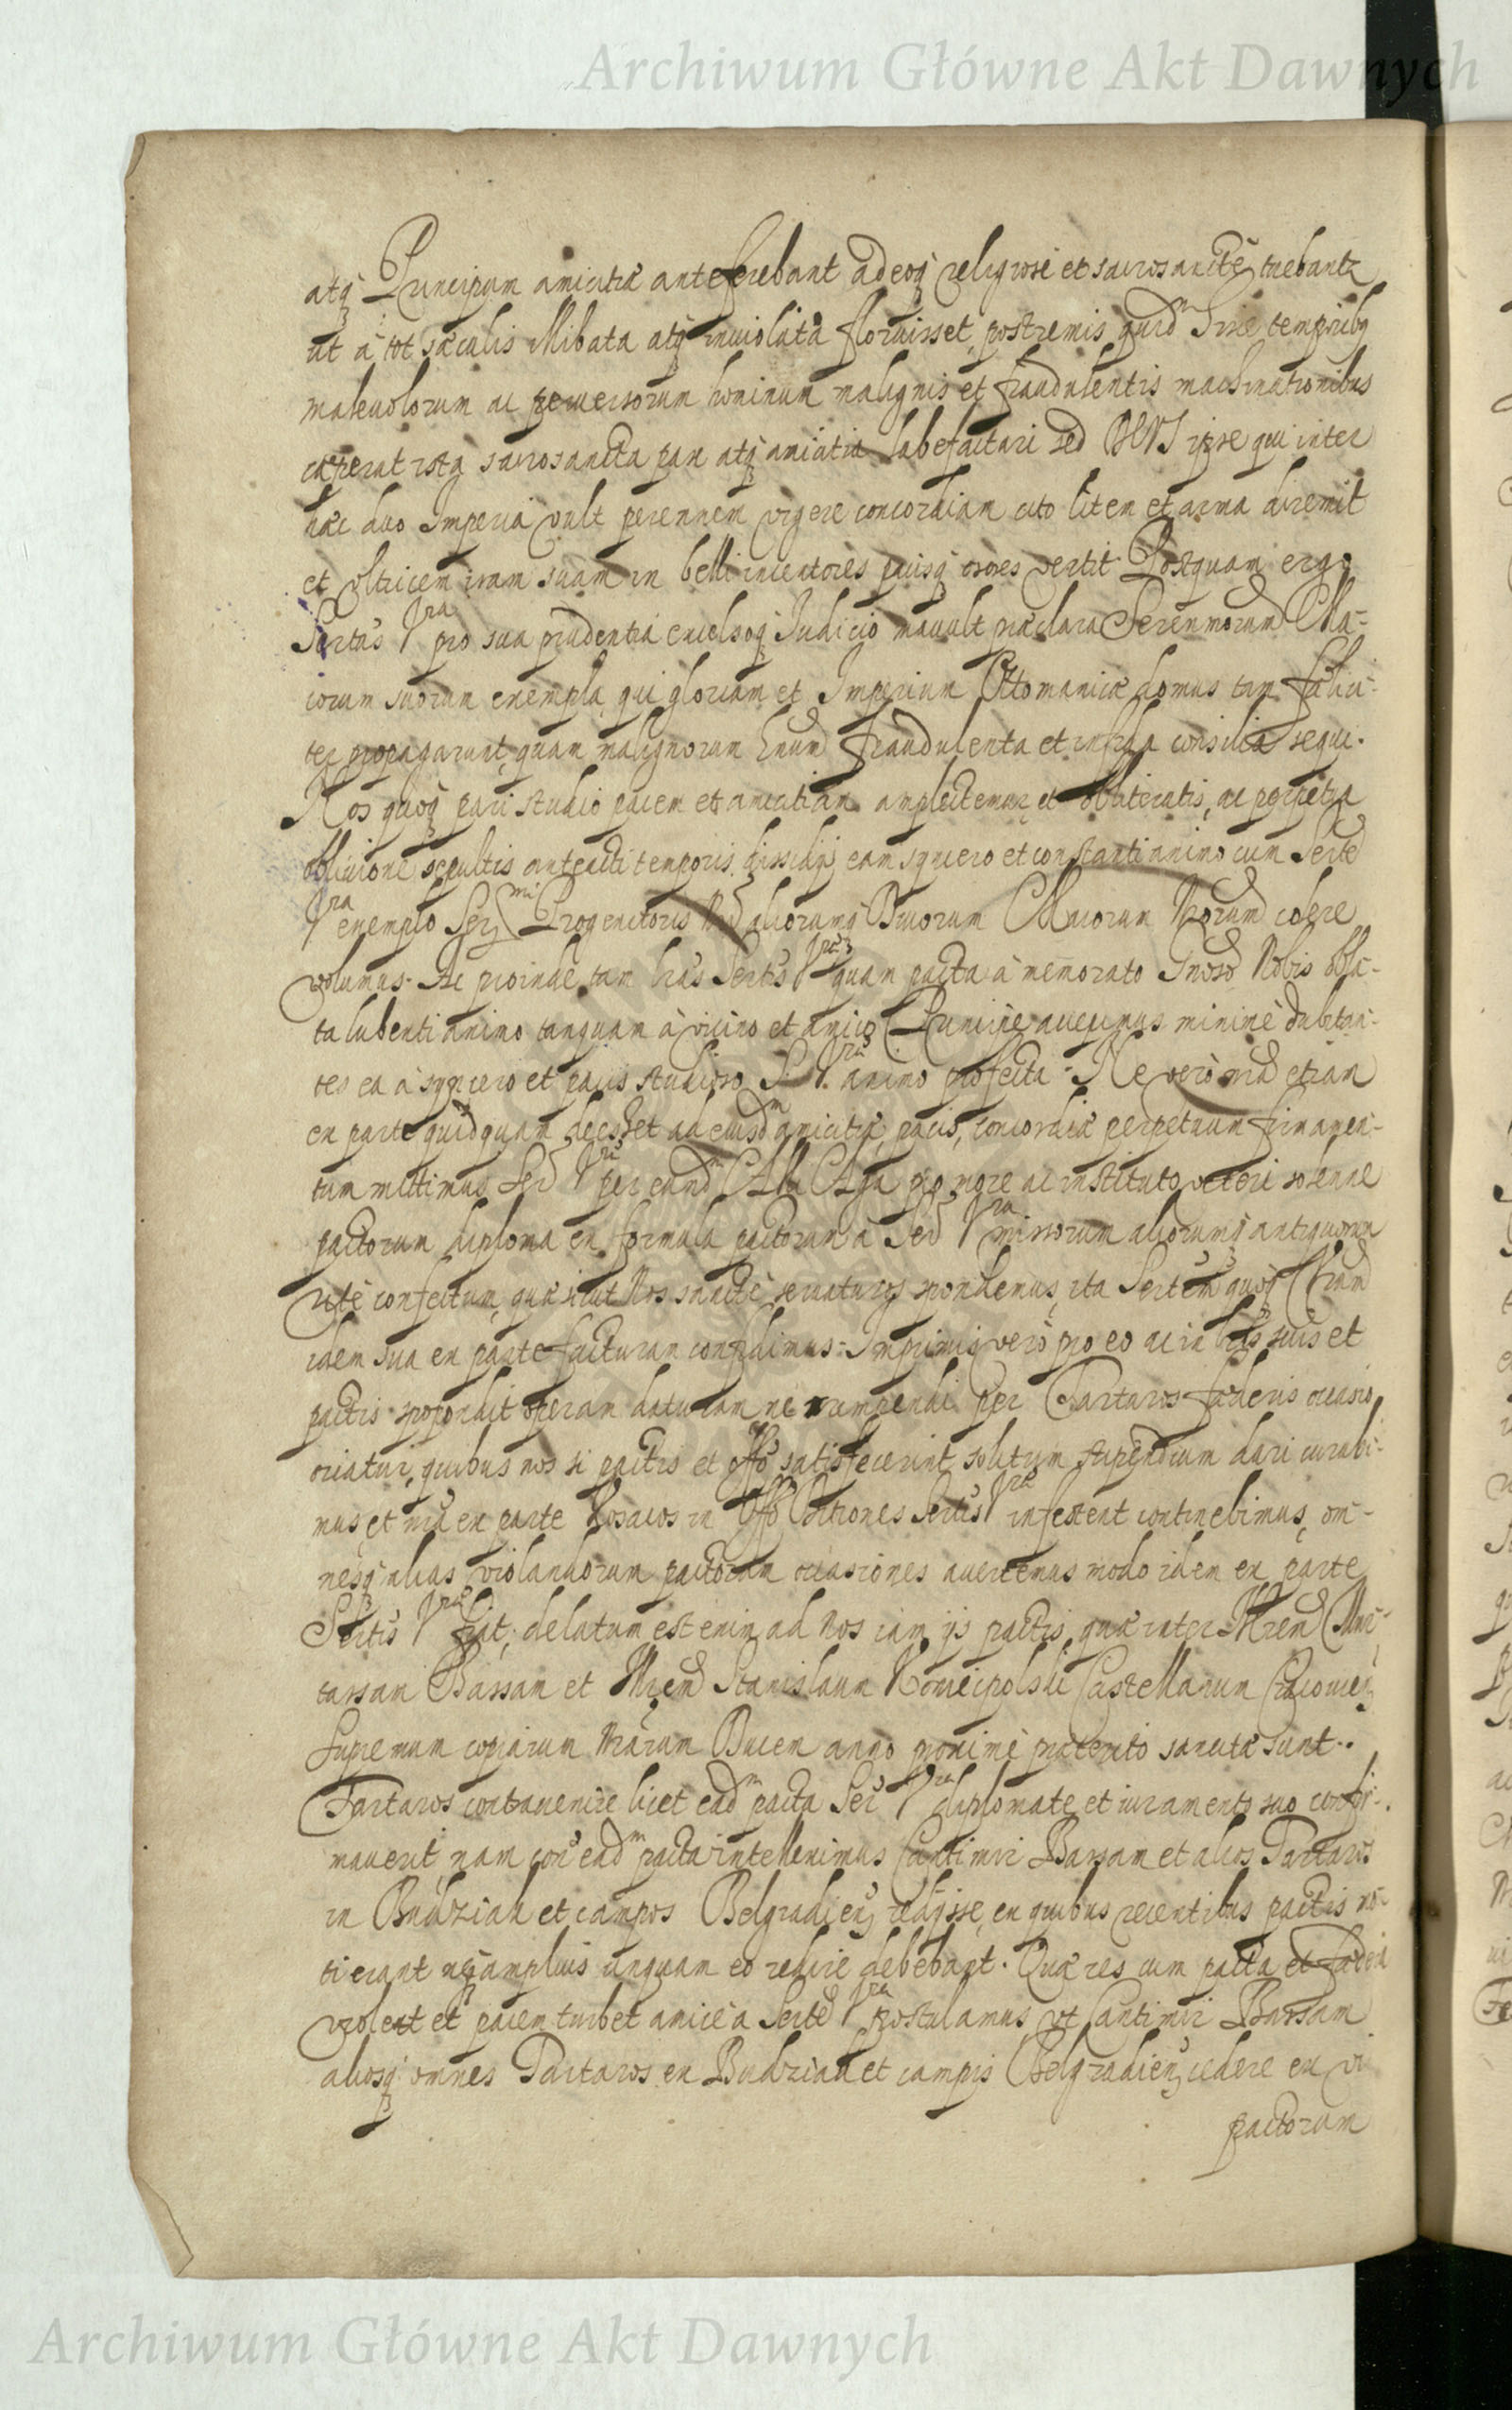 Archiwum Główne Akt Dawnych
atq Principum amicitiæ anteferebant adeoq religiose et sacrosancte tuebantr
ut à tot sæculis illibata atq inviolata floruisset, postremis quidm temporibq
malevolorum ac perversorum hominum malignis et fraudulentis machinationibus
cæperat ista sacrosancta pax atq amicitia labefactari sed DEVS ipse qui inter
hæc duo Imperia vult perennem vigere concordiam cito litem et arma diremit
et ultricem iram suam in belli incentores pacisq osores vertit Postquam ergo
Sertas Vra pro sua prudentia excelsoq Iudicio mavult præclara Serenmorum Ma-
iorum suorum exempla, qui gloriam et Imperium Ottomanicæ domus tam fælici-
ter propagarunt, quam malignorum fraudulenta et infida consilia sequi.
Nos quoq pari studio pacem et amicitiam amplectemur et obliteratis, ac perpetua
oblivione sepultis anteacti temporis dissidijs eam syncero et constanti animo cum Serte
Vra exemplo Sermi Progenitoris Nri aliorumq Divorum Maiorum Norum colere
volumus. Ac proinde tam lras Sertis Vræ quam pacta à memorato Nobis obla-
ta lubenti animo tanquam à vicino et amico Principe accepimus minime dubitan-
tes ea à syncero et pacis studioso S. Vræ animo profecta. Ne vero nra etiam
ex parte quidquam deesset ad eiusdm amicitiæ, pacis, concordiæ perpetuum firmamen-
tum mittimus Ser Vræ per eundm Aga pro more ac instituto veteri solenne
pactorum diploma ex formula pactorum à Ser Vra missorum aliorumq antiquorum
rite confectum, quæ sicut Nos sancte servaturos spondemus, ita Sertem quoq Vram
idem sua ex parte facturam confidimus. Imprimis vero pro eo ac in lris suis et
pactis spopondit operam daturam ne rumpendi per Tartaros fœderis occasio
oriatur, quibus nos si pactis et offo satisfecerint, solitum stipendium dari curabi-
mus, et nra ex parte Kosacos in offo Ditiones Sertis Vræ infestent continebimus, om-
nesq alias violandorum pactorum occasiones avertemus modo idem ex parte
Sertis Vræ fiat; delatum est enim ad Nos iam ijs pactis, quæ inter
Bassam et Stanislaum Koniecpolski Castellanum Cracovien
Supremum copiarum Nrarum Ducem anno proxime præterito sancita sunt.
Tartaros contravenire licet eadm pacta Ser Vra diplomate et iuramento suo confir-
maverit, nam con eadm pacta intelleximus Cantimir Bassam et alios Tartaros
in Budziak et campos Belgradien redijsse, ex quibus recentibus pactis
erant neq amplius unquam eo redire debebant. Quæ res cum pacta et fœdera
violent et pacem turbet amice a Serte Vra postulamus, vt Cantimir Bassam
aliosq omnes Tartaros ex Budziak et campis Belgradien cedere ex vi
pactorum
Archiwum Główne Akt Dawnych